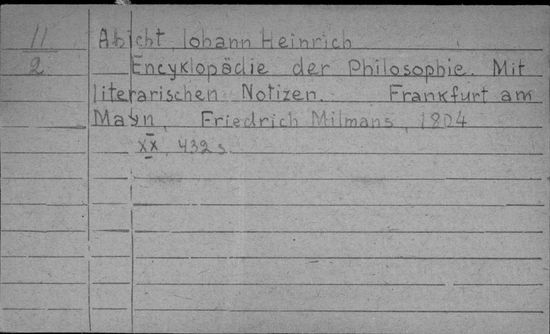 11 Abicht, Iohann Heinrich
2 Encyklopädie der Philosophie. Mit
literarischen Notizen. Frankfurt am
Mayn, Friedrich Milmans, 1804
XX, 432 s.